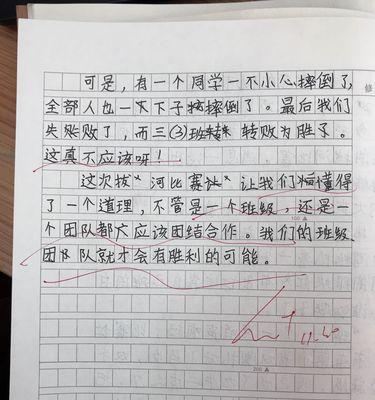 可是，有一个同学一不小心摔倒了，
全部人也一下子摔倒了。最后我们
失败了，而三(3)班转败为胜了。
这真不应该呀！
这次拔"河比赛让"让我们懂得
了一个道理，不管是一个班级，还是一
个团队都应该团结合作。我们的班级、
团队就才会有胜利的可能。
11.20